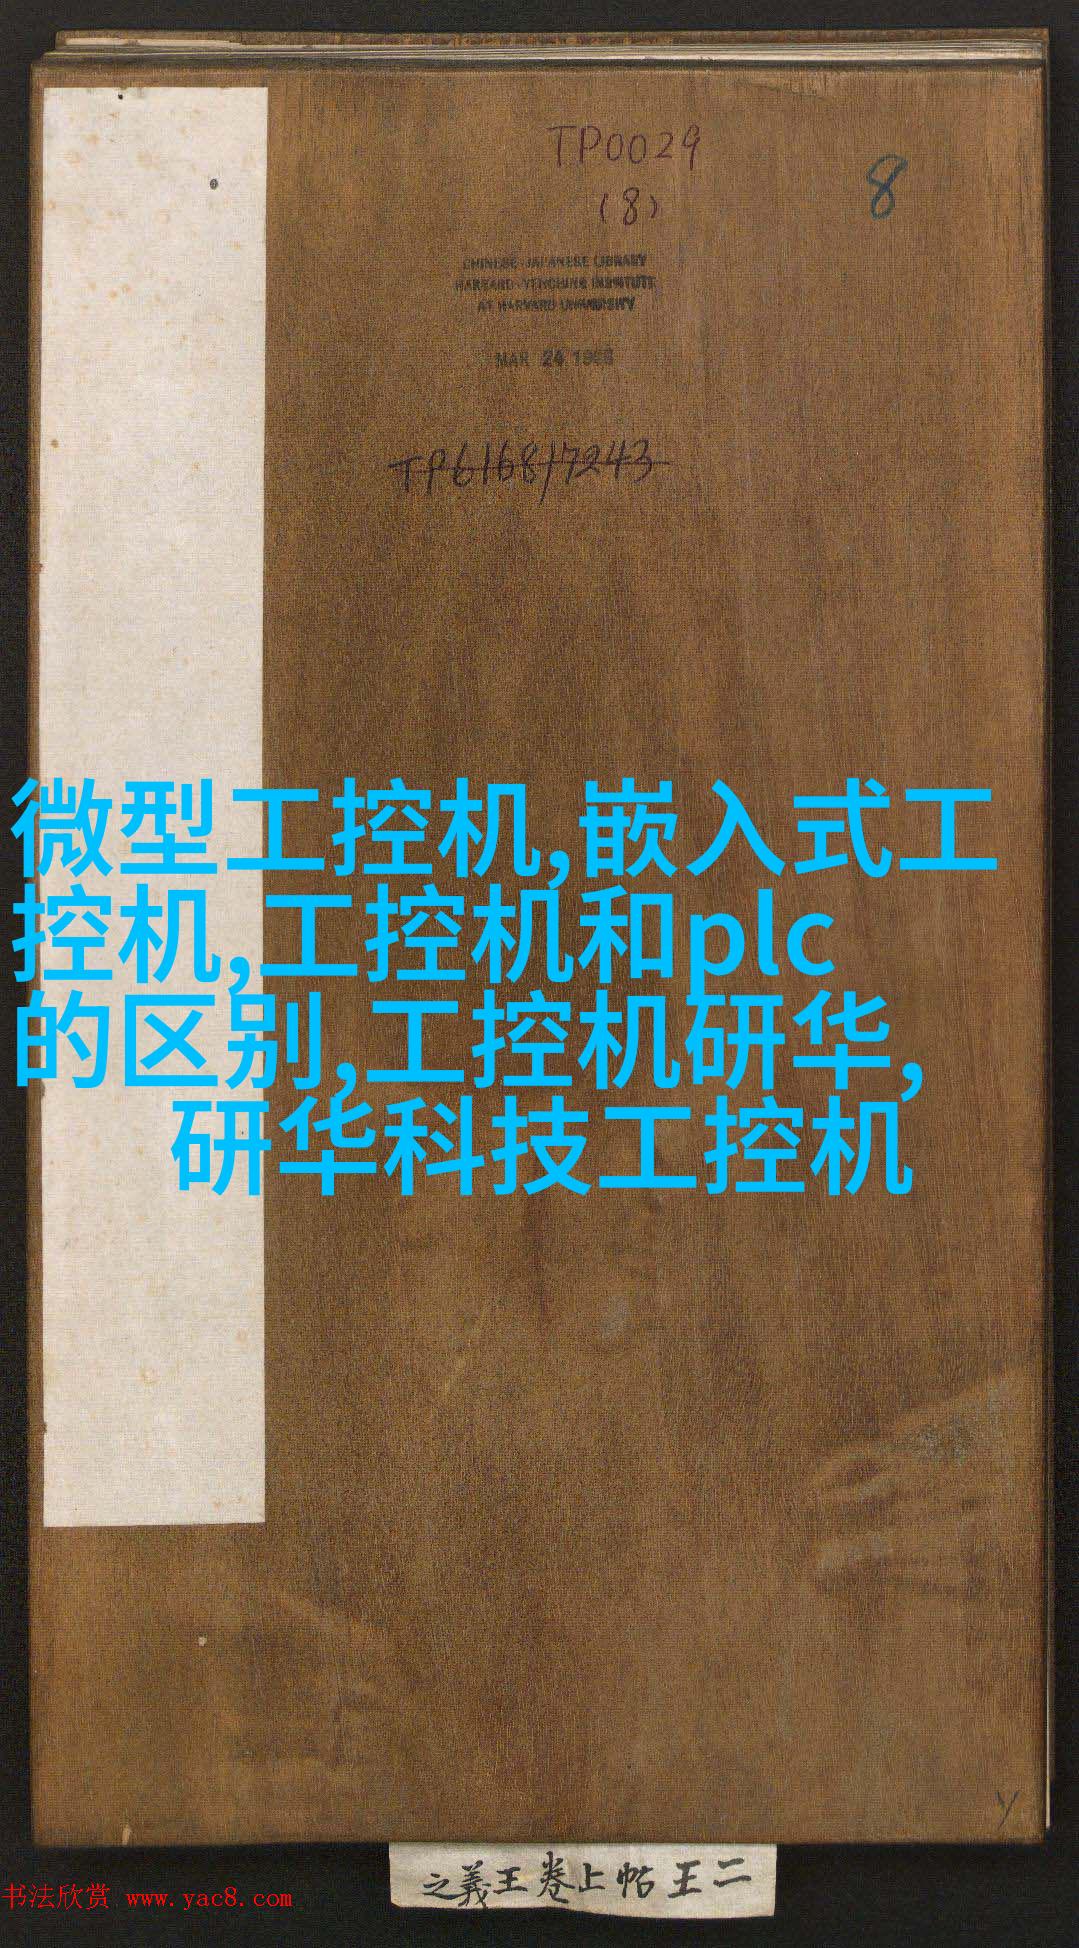 TP0029
(8)
8
CHINESE-JAPANESE LIBRARY
HARVARD-YENCHING INSTITUTE
AT HARVARD UNIVERSITY
MAR 24
TP6168/7243
微型工控机,嵌入式工
控机,工控机和plc
的区别,工控机研华,
研华科技工控机
二王帖上卷 王羲之
书法欣赏 www.yac8.com